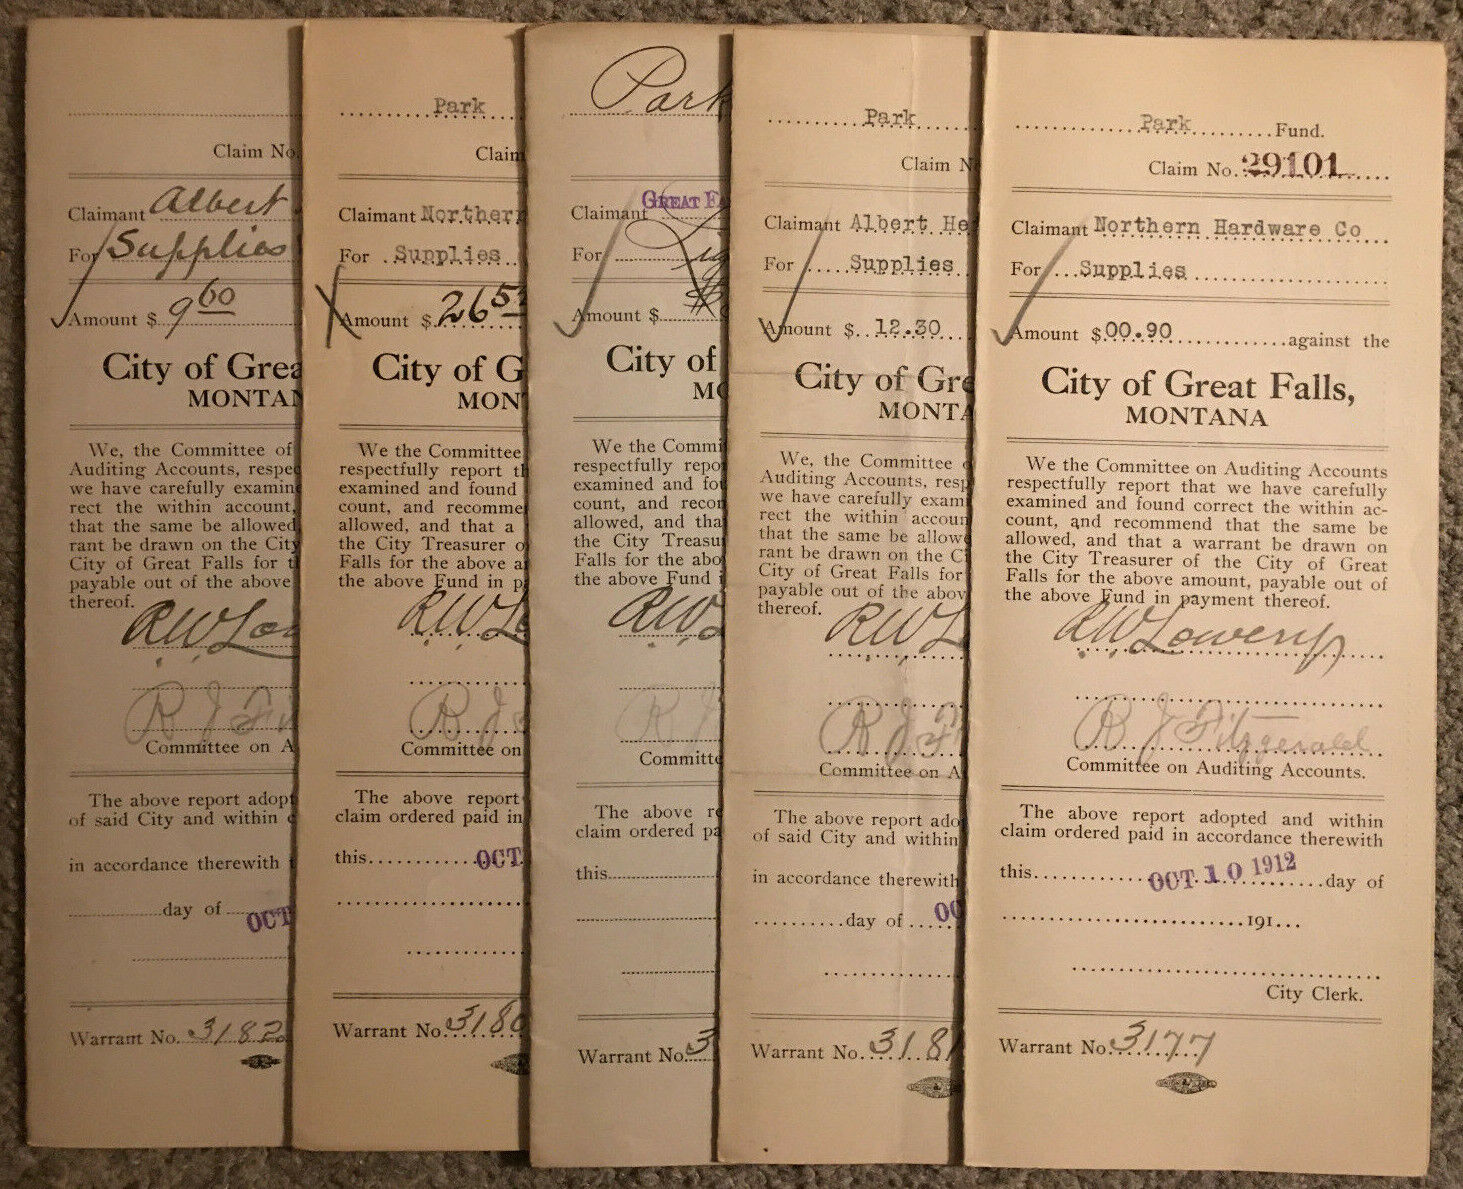 Claim No.
Claimant Albert
For Supplies
Amount $ 9 60
City of Grea
MONTAN
We, the Committee of
Auditing Accounts, respec
we have carefully examin
rect the within account,
that the same be allowed
rant be drawn on the City
City of Great Falls for t
payable out of the above
thereof.
R W Low
R J Fi
Committee on A
The above report adopt
of said City and within c
in accordance therewith
day of OCT
Warrant No. 3182
Park
Claim
Claimant Northern
For Supplies
Amount $ 26 5
City of G
MON
We the Committee
respectfully report th
examined and found
count, and recomme
allowed, and that a
the City Treasurer o
Falls for the above a
the above Fund in p
R W L
R J
Committee on
The above report
claim ordered paid in
this OCT
Warrant No. 3180
Park
Claimant GREAT FA
For Lig
Amount $
City of
MO
We the Commi
respectfully repo
examined and fou
count, and recom
allowed, and tha
the City Treasu
Falls for the abo
the above Fund i
R W L
R J
Committe
The above re
claim ordered pa
this
Warrant No. 3
Park
Claim N
Claimant Albert He
For Supplies
Amount $ 12.30
City of Gre
MONTA
We, the Committee o
Auditing Accounts, resp
we have carefully exam
rect the within accoun
that the same be allowe
rant be drawn on the Ci
City of Great Falls for
payable out of the abov
thereof.
R W L
R J F
Committee on A
The above report ado
of said City and within
in accordance therewith
day of OC
Warrant No. 3181
Park Fund.
Claim No. 29101
Claimant Northern Hardware Co
For Supplies
Amount $ 00.90 against the
City of Great Falls,
MONTANA
We the Committee on Auditing Accounts
respectfully report that we have carefully
examined and found correct the within ac-
count, and recommend that the same be
allowed, and that a warrant be drawn on
the City Treasurer of the City of Great
Falls for the above amount, payable out of
the above Fund in payment thereof.
R W Lowery
R J Fitzgerald
Committee on Auditing Accounts.
The above report adopted and within
claim ordered paid in accordance therewith
this OCT 10 1912 day of
191
City Clerk.
Warrant No. 3177